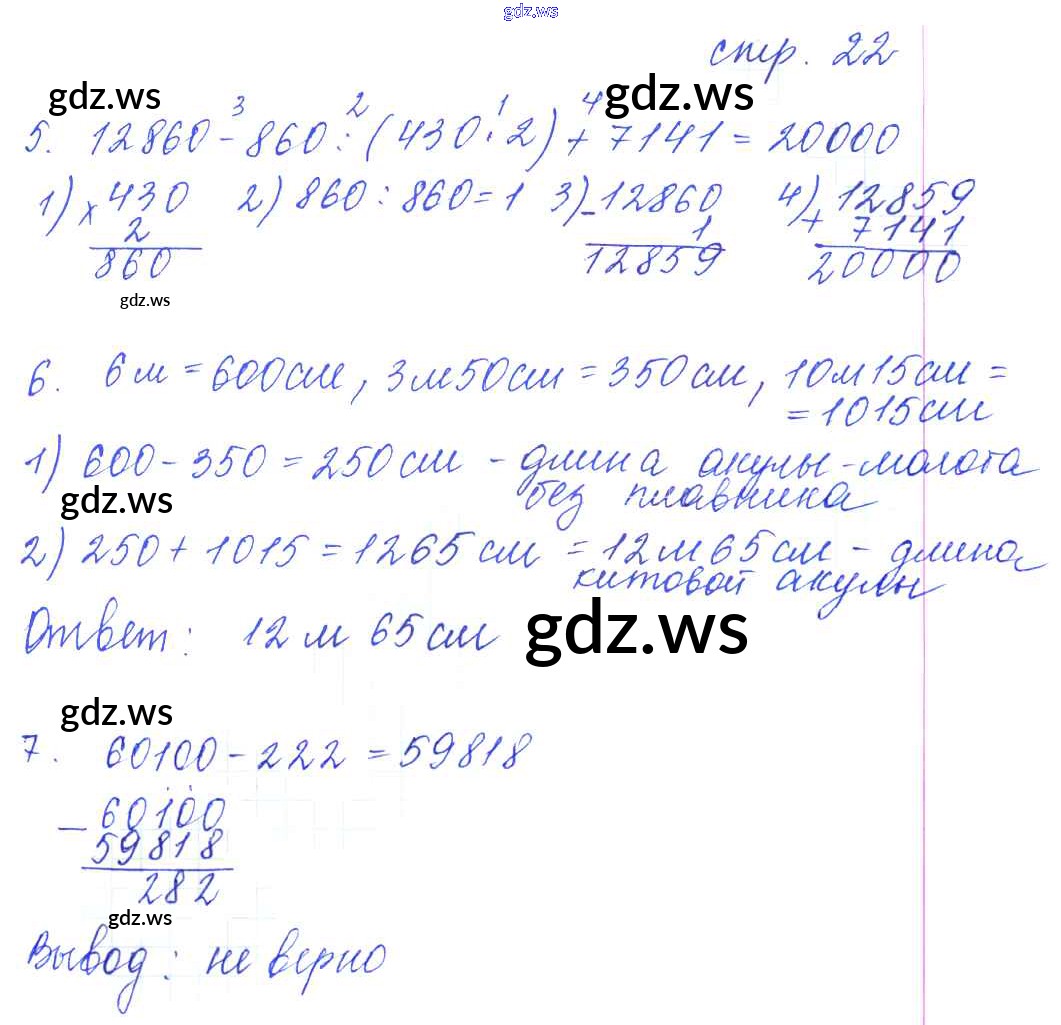 gdz.ws
стр. 22
gdz.ws gdz.ws
3 2 1 4
5. 12860 - 860 : (430 · 2) + 7141 = 20000
1) × 430 2) 860 : 860 = 1 3) - 12860 4) + 12859
2 1 7141
860 12859 20000
gdz.ws
6. 6 м = 600 см, 3 м 50 см = 350 см, 10 м 15 см =
= 1015 см
1) 600 - 350 = 250 см - длина акулы-молота
gdz.ws без плавника
2) 250 + 1015 = 1265 см = 12 м 65 см - длина
китовой акулы
Ответ: 12 м 65 см gdz.ws
gdz.ws
7. 60100 - 222 = 59818
- 60100
59818
282
gdz.ws
Вывод: не верно